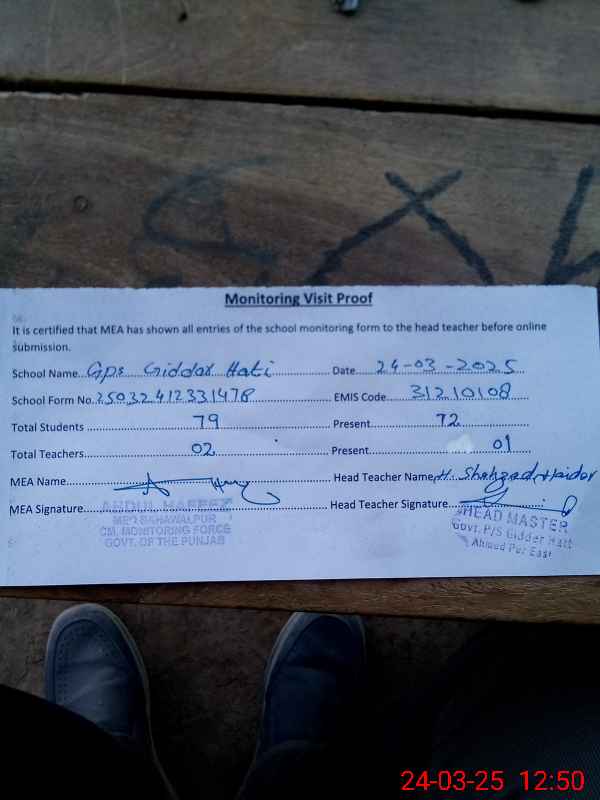 Monitoring Visit Proof
It is certified that MEA has shown all entries of the school monitoring form to the head teacher before online
submission.
School Name...Gps Giddar Hati Date 24-03-2025
School Form No.25032412331478 EMIS Code 31210108
Total Students 79 Present 72
Total Teachers 02 Present 01
MEA Name Head Teacher Name H. Shahzad Haider
MEA Signature Head Teacher Signature
ABDUL HAFEEZ
MEO BAHAWALPUR
CM. MONITORING FORCE
GOVT. OF THE PUNJAB
HEAD MASTER
Govt. P/S Gidder Hatt
Ahmed Pur East
24-03-25 12:50